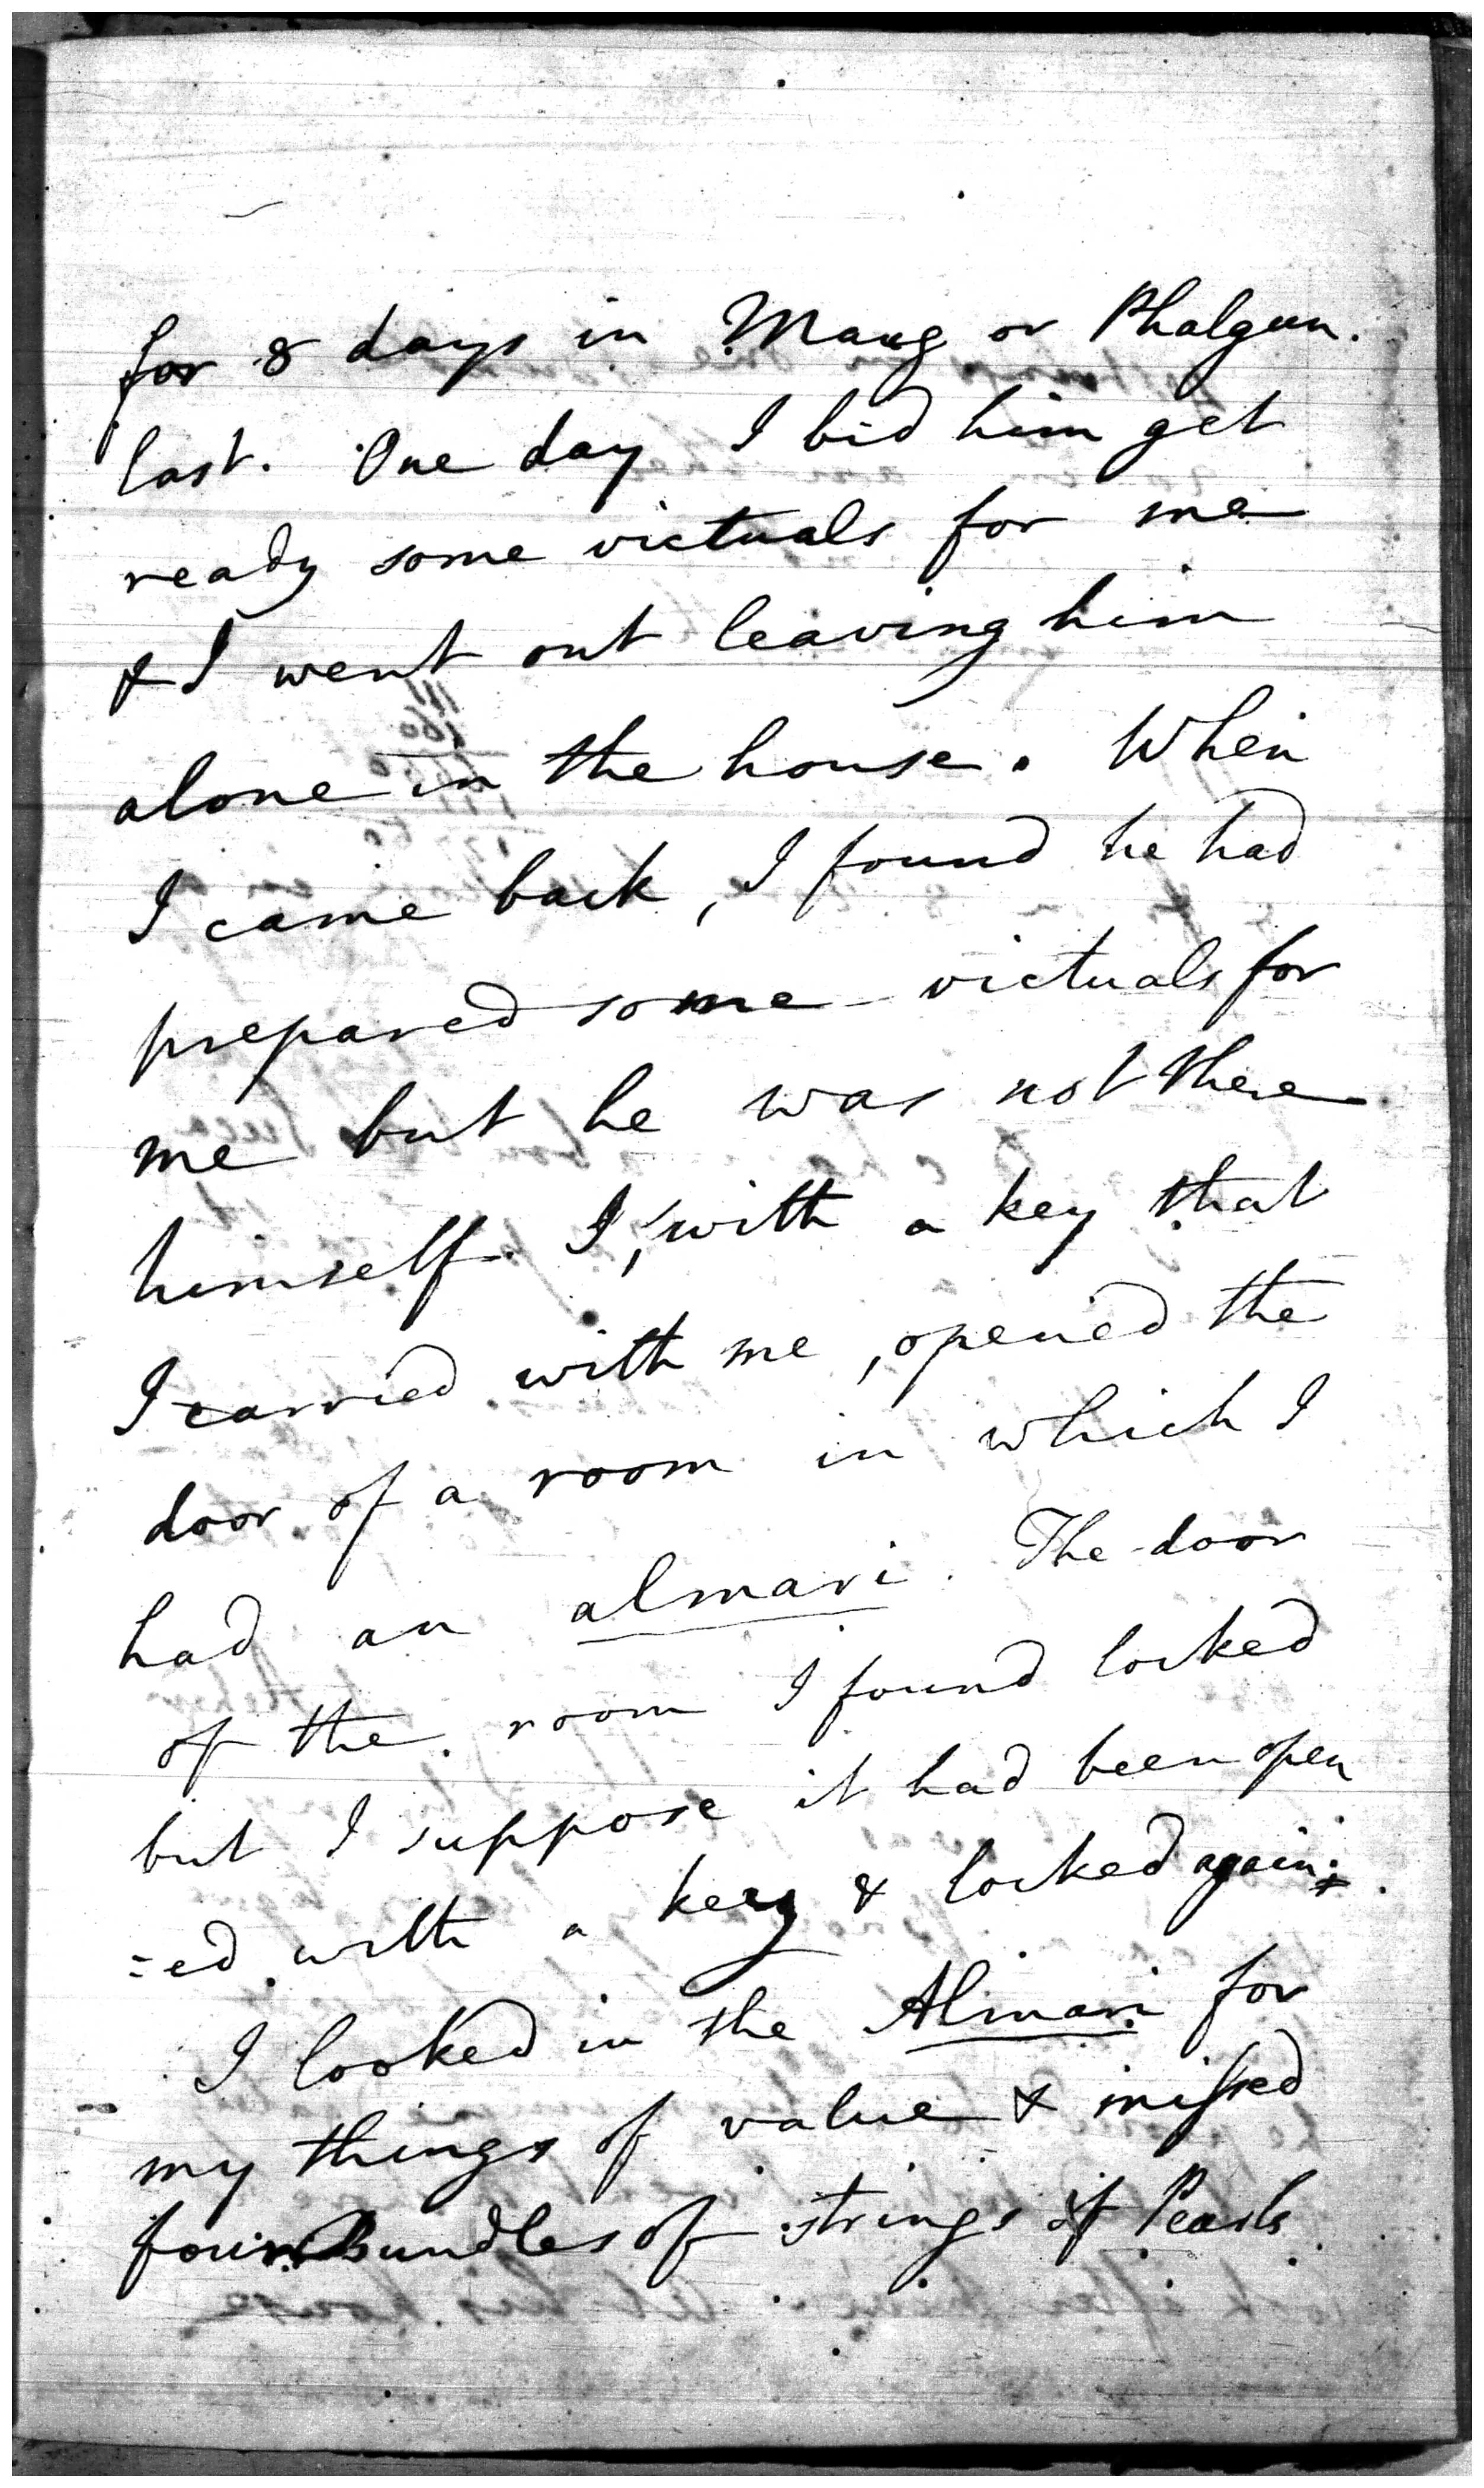 for 8 days in Maug or Phalgun.
last. One day I bid him get
ready some victuals for me
& I went out leaving him
alone in the house. When
I came back, I found he had
prepared some victuals for
me but he was not there
himself. I, with a key that
I carried with me, opened the
door of a room in which I
had an almari. The door
of the room I found locked
but I suppose it had been open
=ed with a key & locked again.
I looked in the Almari for
my things of value & missed
four Bundles of strings of Pearls